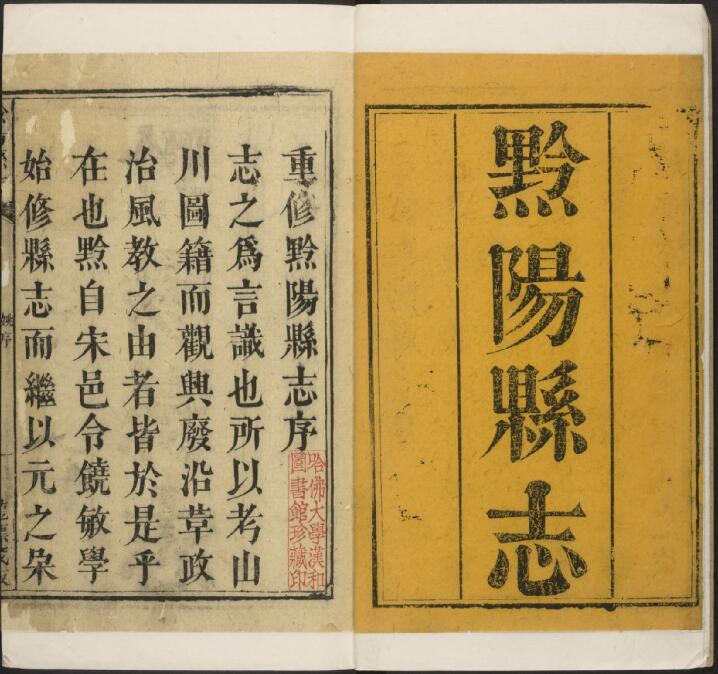 黔陽縣志
重修黔陽縣志序
志之為言識也所以考山
川圖籍而觀興廢沿革政
治風教之由者皆於是乎
在也黔自宋邑令饒敏學
始修縣志而繼以元之朵
哈佛大學漢和
圖書館珍藏印